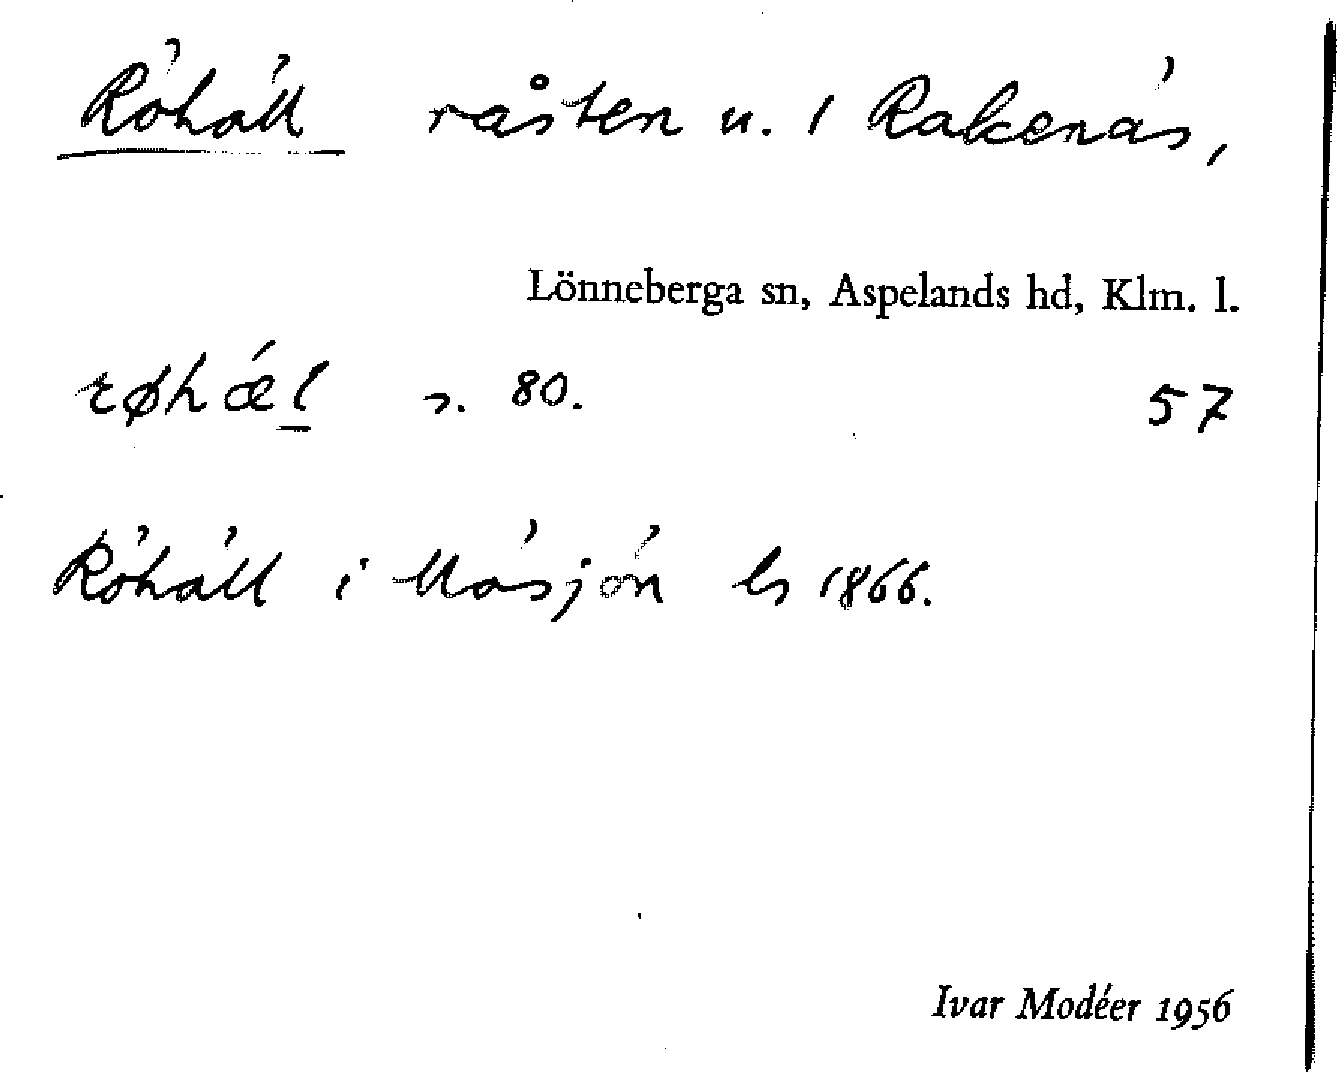 Röhäll råsten u. 1 Rakenäs,
Lönneberga sn, Aspelands hd, Klm. l.
røhǽl s. 80. 57
Röhäll i Måsjön ls 1866.
Ivar Modéer 1956